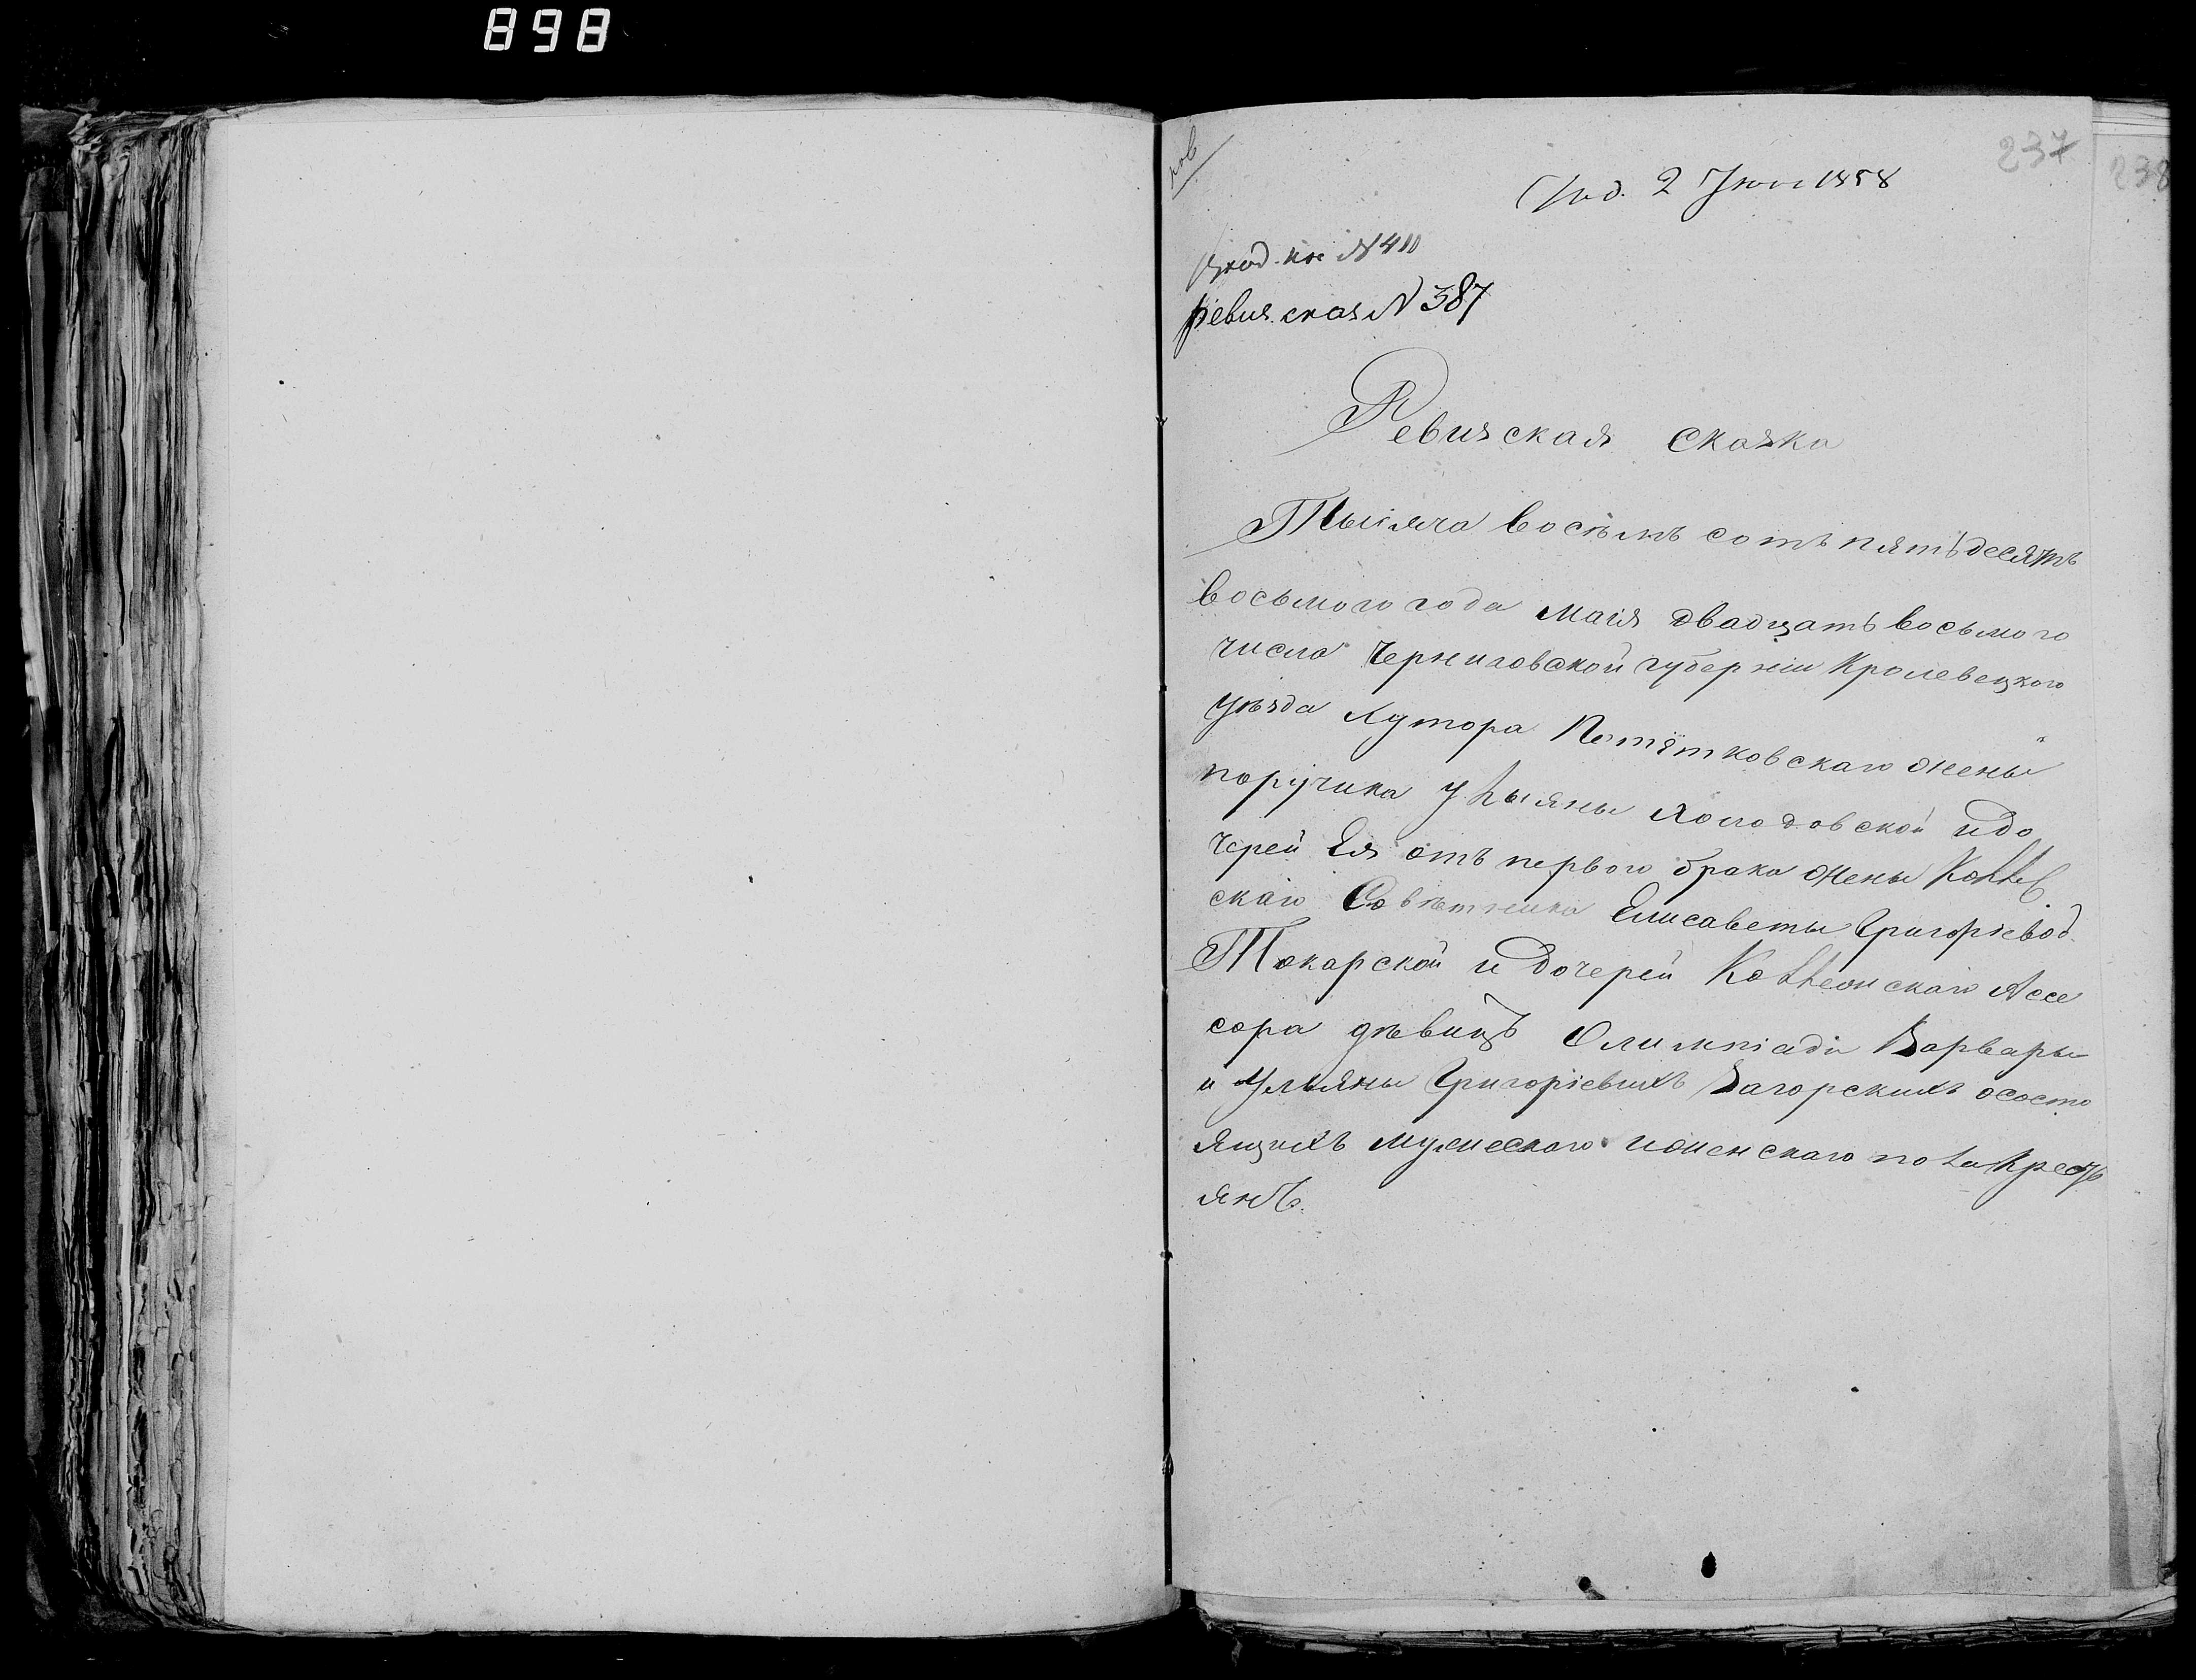 898
237
238
Под. 2 Июня 1858
Вход. кн. N 410
ревиз. сказ. N 387
Ревизская сказка
Тысяча восѣмъ сотъ пятьдесятъ
восьмого года маія двадцать восьмого
числа Черниговской губерніи Кролевецкого
уѣзда Хутора жены
поручика Ульяны Холодовской и до
черей Ея отъ первого брака жены Коллеж
скаго Совѣтника Елисаветы Григоріевой
Токарской и дочерей Коллежскаго Ассе
сора дѣвицъ Олимпіади Варвары
и Ульяны Григоріевыхъ Загорскихъ о состо
ящихъ мужескаго и женскаго пола крестъ
янѣ.